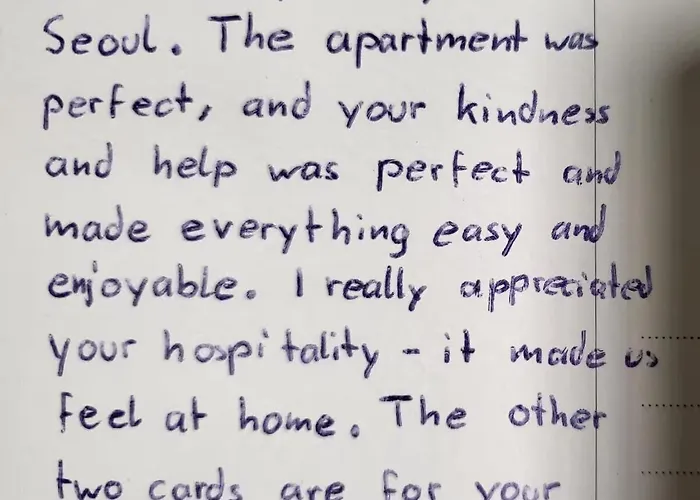 Seoul. The apartment was
perfect, and your kindness
and help was perfect and
made everything easy and
enjoyable. I really appreciated
your hospitality - it made us
feel at home. The other
two cards are for your